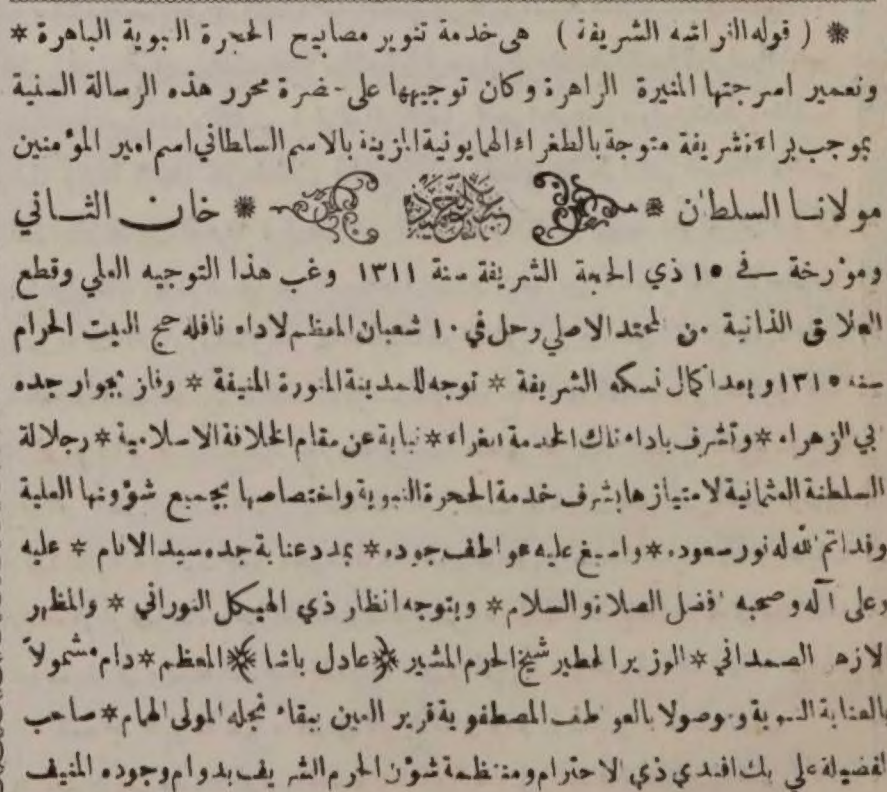 * ( قوله الفراشه الشريفة ) هى خدمة تنوير مصابيح الحجرة النبوية الباهرة *
وتعمير اسرجتها المنيرة الزاهرة وكان توجيهها على حضرة محرر هذه الرسالة السنية
بموجب براءة شريفة متوجة بالطغراء الهمايونية المزينة بالاسم السلطاني اسم امير المؤمنين
مولانا السلطان * عبد الحميد * خان الثاني
ومؤرخة في ١٥ ذي الحجة الشريفة سنة ١٣١١ وغب هذا التوجيه العلي وقطع
العلائق الذاتية من المحتد الاصلي رحل في ١٠ شعبان المعظم لاداء نافله حج البيت الحرام
سنه ١٣١٥ وبعد اكمال نسكه الشريفة * توجه للمدينة المنورة المنيفة * وفاز بجوار جده
ابي الزهراء * وتشرف باداء تلك الخدمة الغراء * نيابة عن مقام الخلافة الاسلامية * وجلالة
السلطنة العثمانية لامتيازها بشرف خدمة الحجرة النبوية واختصاصها بجميع شؤونها العلية
وقد اتم الله له نور سعوده * واسبغ عليه عواطف جوده * بمدد عناية جده سيد الانام * عليه
وعلى آله وصحبه افضل الصلاة والسلام * وبتوجه انظار ذي الهيكل النوراني * والمظهر
الازهر الصمداني * الوزير الخطير شيخ الحرم المشير ﴿عادل باشا﴾ المعظم * دام مشمولاً
بالعناية النبوية وموصولا بالعواطف المصطفوية قرير العين ببقاء نجله المولى الهمام * صاحب
الفضيلة علي بك افندي ذي الاحترام ومنتظمة شؤن الحرم الشريف بدوام وجوده المنيف